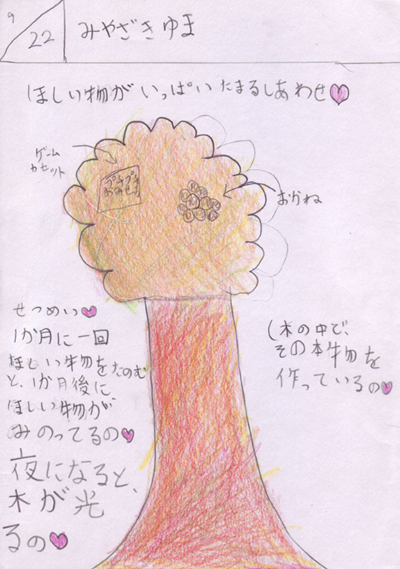 9
22
みやざきゆま
ほしい物がいっぱいたまるしあわせ
ゲーム
カセット
おかね
せつめい
1か月に一回
ほしい物をたのむ
と、1か月後に
ほしい物が
みのってるの
夜になると、
木が光
るの
木の中で、
その本物を
作っているの